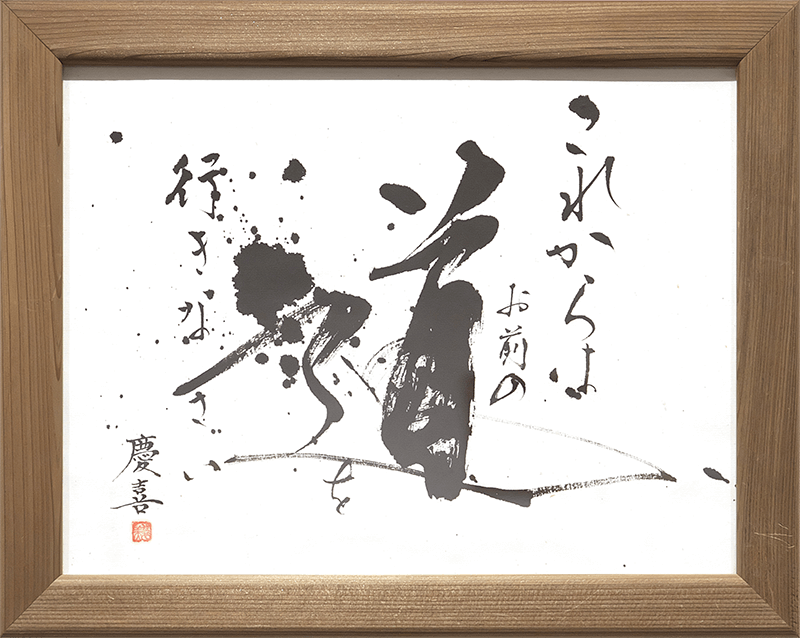 これからは
お前の
道
を
行きなさい
慶喜